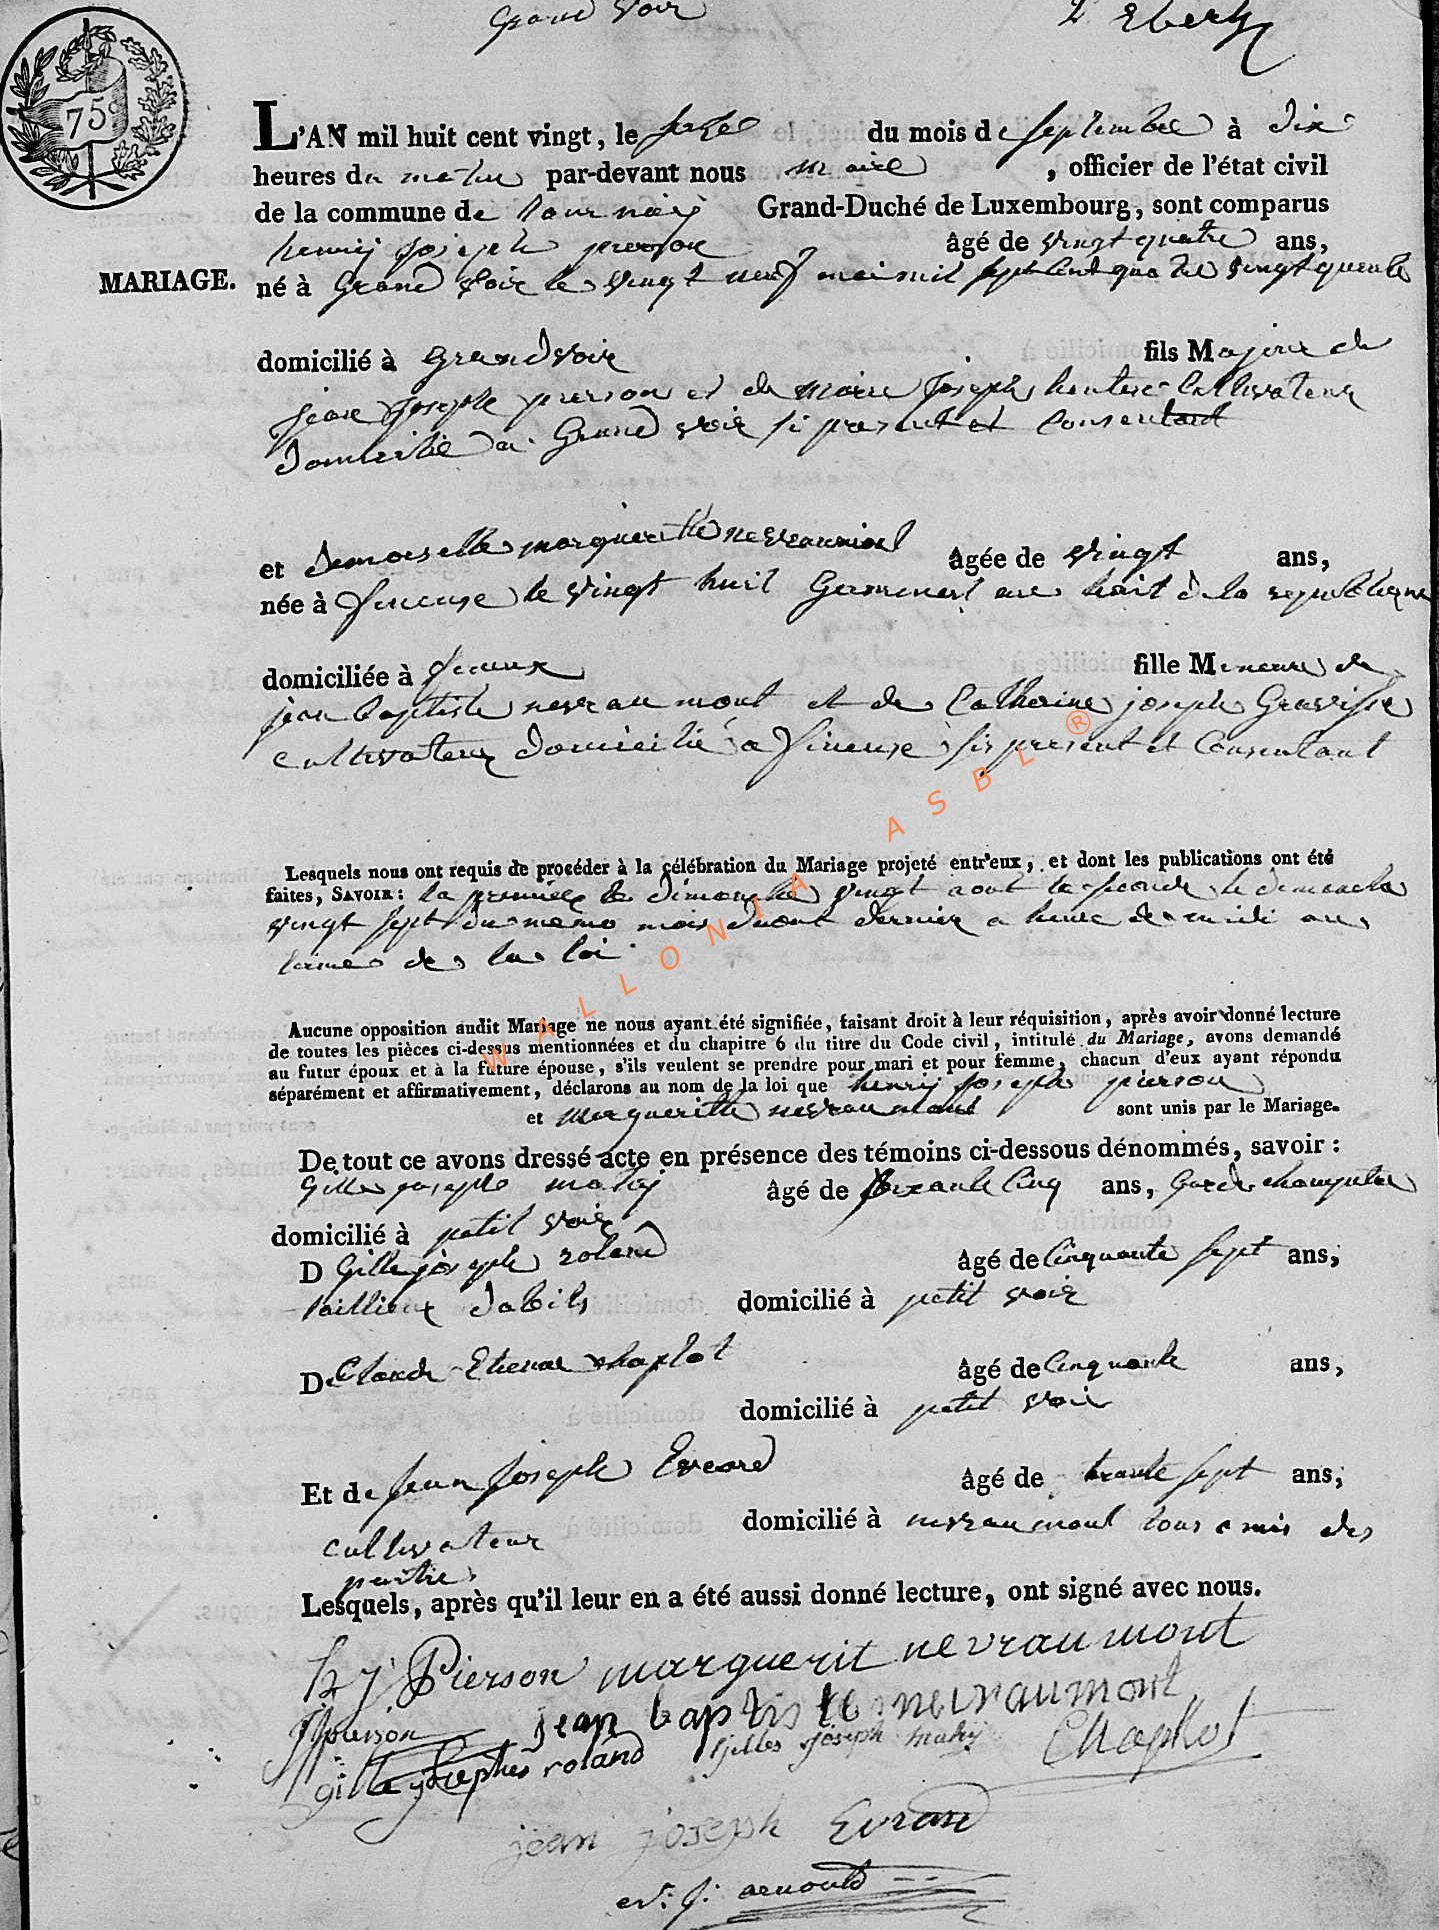 Grand Voir
75c
L'AN mil huit cent vingt, le seize du mois de septembre à dix
heures du matin par-devant nous maire, officier de l'état civil
de la commune de tournaij Grand-Duché de Luxembourg, sont comparus
henrij joseph pierson âgé de vingt quatre ans,
MARIAGE.
né à Grand Voir le vingt neuf mai mil sept cent quatre vingt
domicilié à Grandvoir fils Majeur de
jean joseph pierson et de marie joseph cultivateur
domicilié a Grand voir si present et consentant
et demoiselle marguerithe nevraumont âgée de vingt ans,
née à le vingt huit Germinal an huit de la republique
domiciliée à fille Mineure de
jean baptiste nevraumont et de Catherine joseph Gravisse
cultivateur domicilié a sis present et consentant
Lesquels nous ont requis de procéder à la célébration du Mariage projeté entr'eux, et dont les publications ont été
faites, SAVOIR: la premiere le dimanche vingt aout la seconde le dimanche
vingt sept du meme mois daout dernier a heure de midi au
terme de la loi
Aucune opposition audit Mariage ne nous ayant été signifiée, faisant droit à leur réquisition, après avoir donné lecture
de toutes les pièces ci-dessus mentionnées et du chapitre 6 du titre du Code civil, intitulé du Mariage, avons demandé
au futur époux et à la future épouse, s'ils veulent se prendre pour mari et pour femme, chacun d'eux ayant répondu
séparément et affirmativement, déclarons au nom de la loi que henrij joseph pierson
et marguerithe nevraumont sont unis par le Mariage.
De tout ce avons dressé acte en présence des témoins ci-dessous dénommés, savoir:
Gille joseph mahij âgé de soixante cinq ans, Garde champetre
domicilié à petit voir
D Gille joseph roland âgé de cinquante sept ans,
taillieur dabits domicilié à petit voir
De Claude Etienne chaplot âgé de cinquante ans,
domicilié à petit voir
Et de jean joseph Evrard âgé de trante sept ans,
cultivateur domicilié à nevraumont tous amis des
partie
Lesquels, après qu'il leur en a été aussi donné lecture, ont signé avec nous.
hj Pierson marguerit nevraumont
JJ pierson jean baptiste nevraumont
gille josephe roland Gilles joseph mahij Chaplot
jean joseph Evrard
arnould
WALLONIA ASBL ®